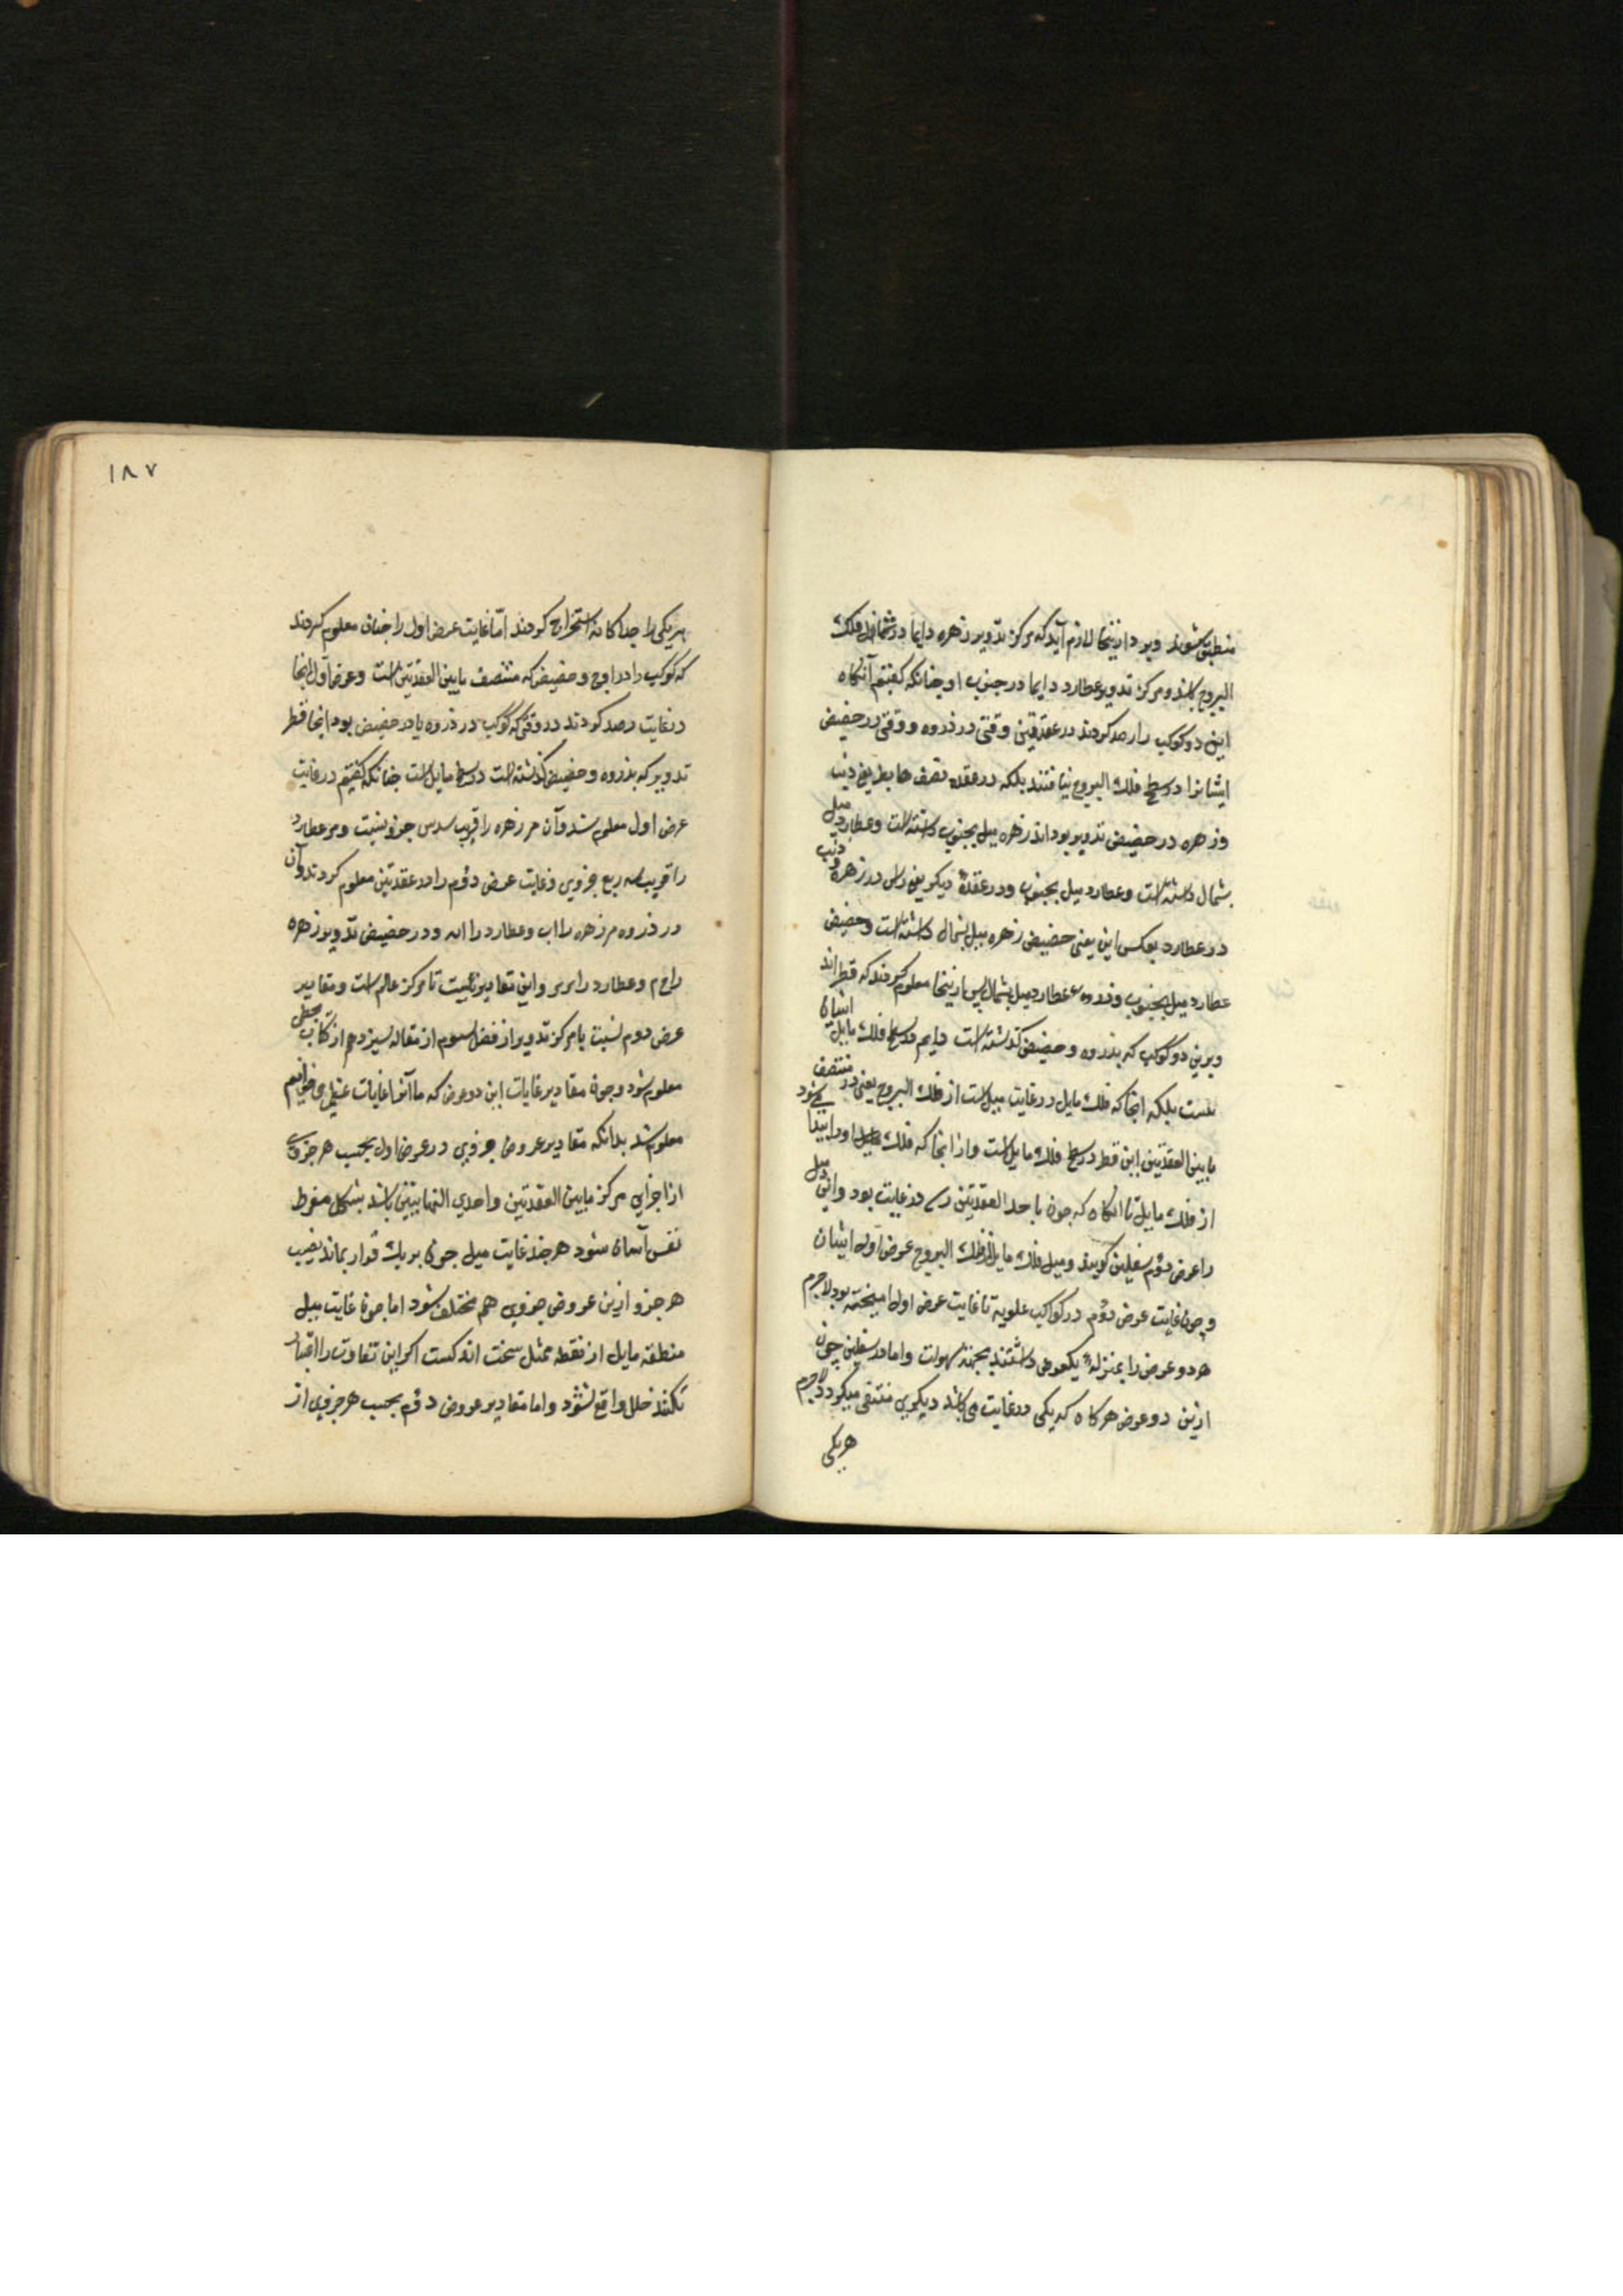 منطبق شوند وبود ازینجا لازم آید که مرکز تدویر زهره دایما در شمال فلک
البروج باشد ومرکز تدویر عطارد دایما در جنوب او چنانکه کفتیم آنکاه
این دو کوکب را رصد کردند در عقدتین وقتی در ذروه ووقتی در حضیض
ایشانرا در سطح فلک البروج نیافتند بلکه در عقده نصف هابط یعنی ذنب
وزهره در حضیض تدویر بود اند زهره میل بجنوب داشته است وعطارد میل
بشمال داشته است وعطارد میل بجنوب ودر عقدهٔ دیکر یعنی راس در زهره وذنب
در عطارد بعکس این یعنی حضیض زهره میل بشمال داشته است وحضیض
عطارد میل بجنوب وذروه عطارد میل بشمال پس ازینجا معلوم کردند که قطر اند
وبرین دو کوکب که بذروه وحضیض کذشته است دایم در سطح فلک مایل ایشان
نیست بلکه آنجا که فلک مایل در غایت میل است از فلک البروج یعنی در منتصف
مابین العقدتین این قطر در سطح فلک مایل است واز انجا که فلک اورا ابتدا می‌شود
از فلک مایل تا انکاه که چون باحد العقدتین رسد در غایت بود واین میل
را عرض دوم سفلیین کویند ومیل فلک مایل از فلک البروج عرض اول ایشان
وچون غایت عرض دوم در کواکب علویه تا غایت عرض اول امیخته بود لاجرم
هر دو عرض را بمنزلهٔ یکعرض داشتند بجهة سهولت واما در سفلیین چون
ازین دو عرض هرکاه که یکی در غایت می باشد دیکری منتفی میکردد لاجرم
هریکی
۱۸۷
هریکی را جداکانه استخراج کردند اما غایت عرض اول را چنان معلوم کردند
که کوکب را در اوج وحضیض که منتصف مابین العقدتین است وعرض اول انجا
در غایت رصد کردند در وقتی که کوکب در ذروه یا در حضیض بود انجا قطر
تدویر که بذروه وحضیض کذشته است در سطح مایل است چنانکه کفتیم در غایت
عرض اول معلوم شد وآن مر زهره را قریب سدس جزو نیست ومر عطارد
را قریب سه ربع جزوی وغایت عرض دوم را در عقدتین معلوم کردند وآن
در ذروه مر زهره را اب وعطارد را امه ودر حضیض تدویر زهره
را وعطارد را واین تقادیر نسبت تا مرکز عالم است ومقادیر
عرض دوم نسبت با مرکز تدویر از فصل سوم از مقاله سیزدهم از کتاب مجسطی
معلوم شود وچون مقادیر غایات این دو عرض که ما آنرا غایات عظمی می خوانیم
معلوم شد بدانکه مقادیر عروض جزوی در عرض اول بحسب هر جزوی
از اجزای مرکز مابین العقدتین واحدی النهایتین باشد بشکل مفروط
نفس آسان شود هرچند غایت میل چون بر یک قرار بماند نصیب
هر جزو ازین عروض جزوی هم مختلف شود اما چون غایت میل
منطقه مایل از نقطه ممثل سخت اندکست اکر این تفاوت را اعتبار
نکنند خلل واقع نشود واما مقادیر عروض دوم بحسب هر جزوی از